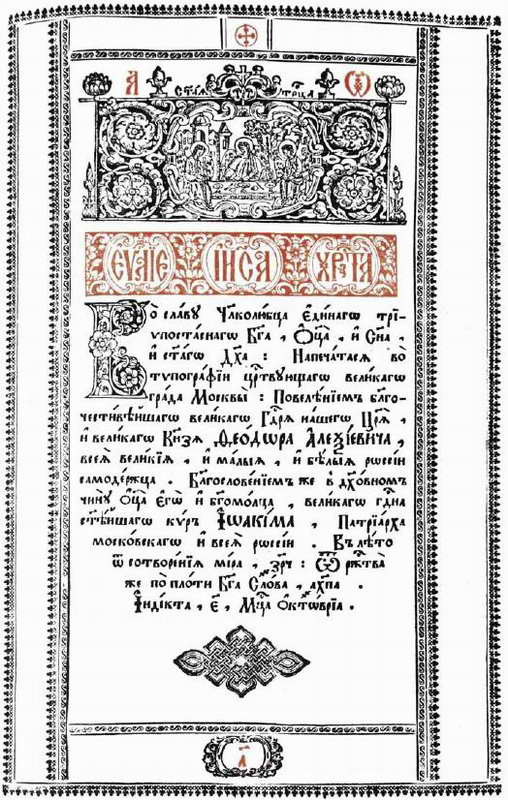 А Ѡ
СТ҃АѦ ТРО҃ЦА
ЕѴ҃ЛІЕ ІИ҃СА ХРТ҃А
Во славу Чл҃колюбца Единагѡ трі-
ѵпостаснагѡ Бг҃а, Ѻц҃а, и Сн҃а,
и ст҃агѡ Дх҃а: Напечатасѧ во
тѵпографїи цр҃твующагѡ великагѡ
града Москвы: Повелѣнїемъ бл҃го-
честивѣйшагѡ великагѡ Гд҃рѧ нашегѡ Цр҃ѧ,
и великагѡ Кн҃зѧ Ѳеодѡра Алеѯїевича,
всеѧ великїѧ, и малыѧ, и бѣлыѧ рѡссїи
самодержца. Бл҃гословенїемъ же в дх҃овномъ
чину Ѻц҃а Егѡ и бг҃омолца, великагѡ гд҃на
ст҃ѣйшагѡ кѵръ Іѡакіма, Патрїарха
московскагѡ и всеѧ рѡссїи. Въ лѣто
ѿ сотворенїѧ мїра, зр҃ч: Ѿ рж҃тва
же по плоти Бг҃а Слова, ахп҃а.
Їндїкта, е҃, Мц҃а Ѻктѡврїа.
а҃